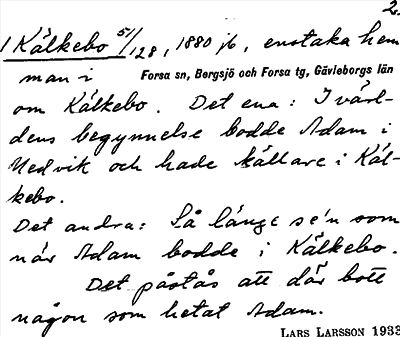 2.
1 Kälkebo 51/128, 1880 jb, enstaka hem
man i Forsa sn, Bergsjö och Forsa tg, Gävleborgs län
om Kälkebo. Det ena: I värl-
dens begynnelse bodde Adam i
Nedvik och hade källare i Käl-
kebo.
Det andra: Så länge se'n som
när Adam bodde i Kälkebo.
Det påstås att där bott
någon som hetat Adam.
LARS LARSSON 1933